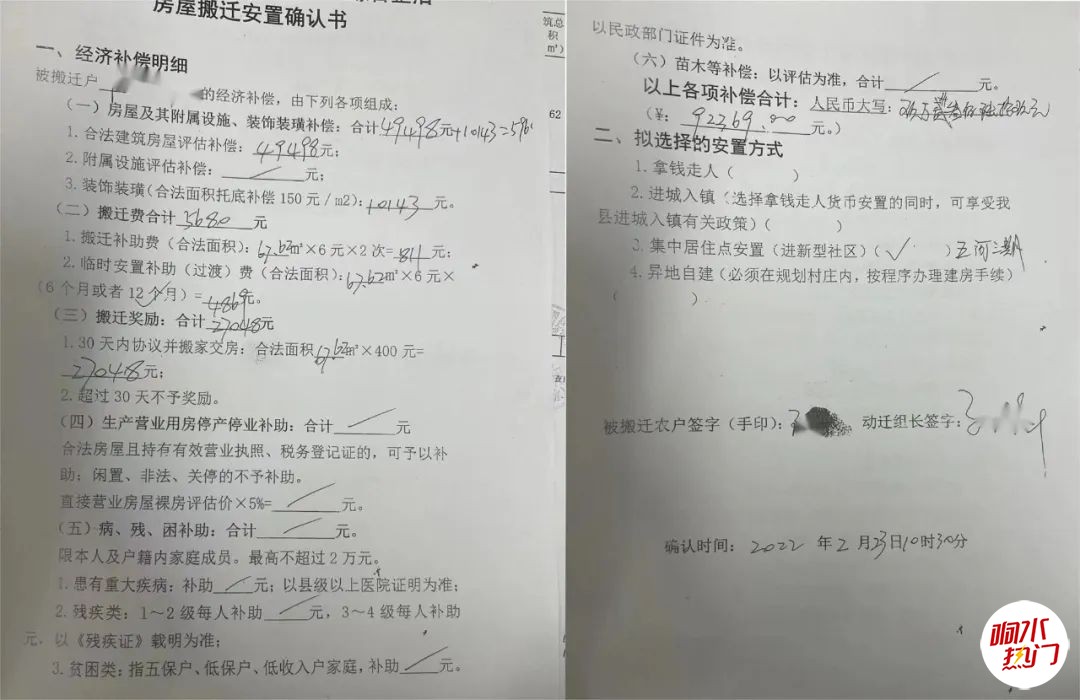 房屋搬迁安置确认书
一、经济补偿明细
被搬迁户 的经济补偿，由下列各项组成：
（一）房屋及其附属设施、装饰装璜补偿：合计49498元+10143=596
1.合法建筑房屋评估补偿：49498元；
2.附属设施评估补偿：／元；
3.装饰装璜（合法面积托底补偿150元/m2）：10143元。
（二）搬迁费合计5680元
1.搬迁补助费（合法面积）：67.62㎡×6元×2次=811元；
2.临时安置补助（过渡）费（合法面积）：67.62㎡×6元×
（6个月或者12个月）=4869元。
（三）搬迁奖励：合计27048元
1.30天内协议并搬家交房：合法面积67.62㎡×400元=
27048元；
2.超过30天不予奖励。
（四）生产营业用房停产停业补助：合计／元
合法房屋且持有有效营业执照、税务登记证的，可予以补
助；闲置、非法、关停的不予补助。
直接营业房屋裸房评估价×5%=／元。
（五）病、残、困补助：合计／元。
限本人及户籍内家庭成员。最高不超过2万元。
1.患有重大疾病：补助／元；以县级以上医院证明为准；
2.残疾类：1～2级每人补助／元，3～4级每人补助
元，以《残疾证》载明为准；
3.贫困类：指五保户、低保户、低收入户家庭，补助／元。
筑总
积
㎡）
62
以民政部门证件为准。
（六）苗木等补偿：以评估为准，合计／元。
以上各项补偿合计：人民币大写：
（¥：92369.00元。）
二、拟选择的安置方式
1.拿钱走人（ ）
2.进城入镇（选择拿钱走人货币安置的同时，可享受我
县进城入镇有关政策）（ ）
3.集中居住点安置（进新型社区）（✓）三河三期
4.异地自建（必须在规划村庄内，按程序办理建房手续）
（ ）
被搬迁农户签字（手印）： 动迁组长签字：
确认时间：2022年2月23日10时30分
响水
热门